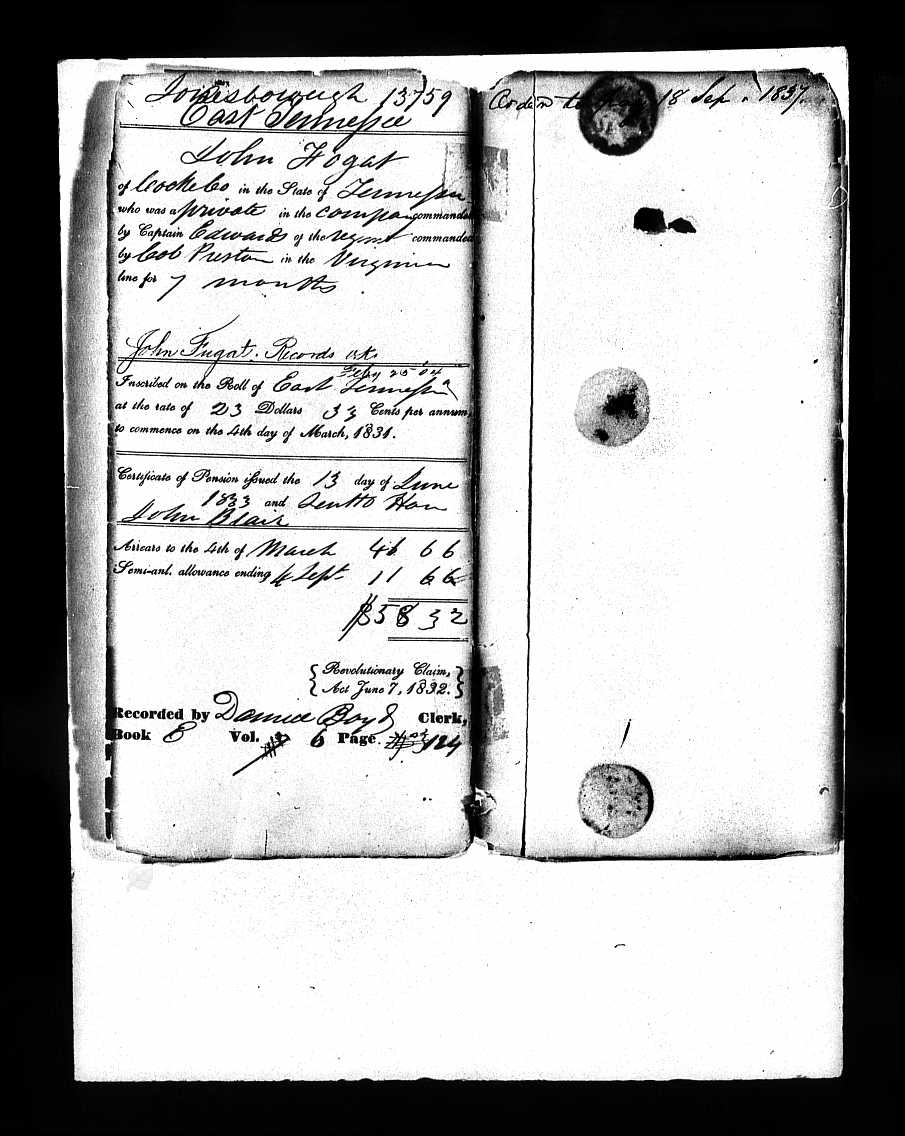 Jonesborough 13759
East Tennessee
John Fogat
of Cocke Co in the State of Tennessee
who was a private in the company commanded
by Captain Edwards of the regmt commanded
by Col Preston in the Virginia
line for 7 months
John Fugat. Records
Feby 25 '04
Inscribed on the Roll of East Tennessee
at the rate of 23 Dollars 33 Cents per annum,
to commence on the 4th day of March, 1831.
Certificate of Pension issued the 13 day of June
1833 and sent to Hon
John Blair
Arrears to the 4th of March 46 66
Semi-anl. allowance ending 4 Sept. 11 66
$58 32
Revolutionary Claim,
Act June 7, 1832.
Recorded by Daniel Boyd Clerk,
Book E Vol. 6 Page 124
18 Sep. 1837.